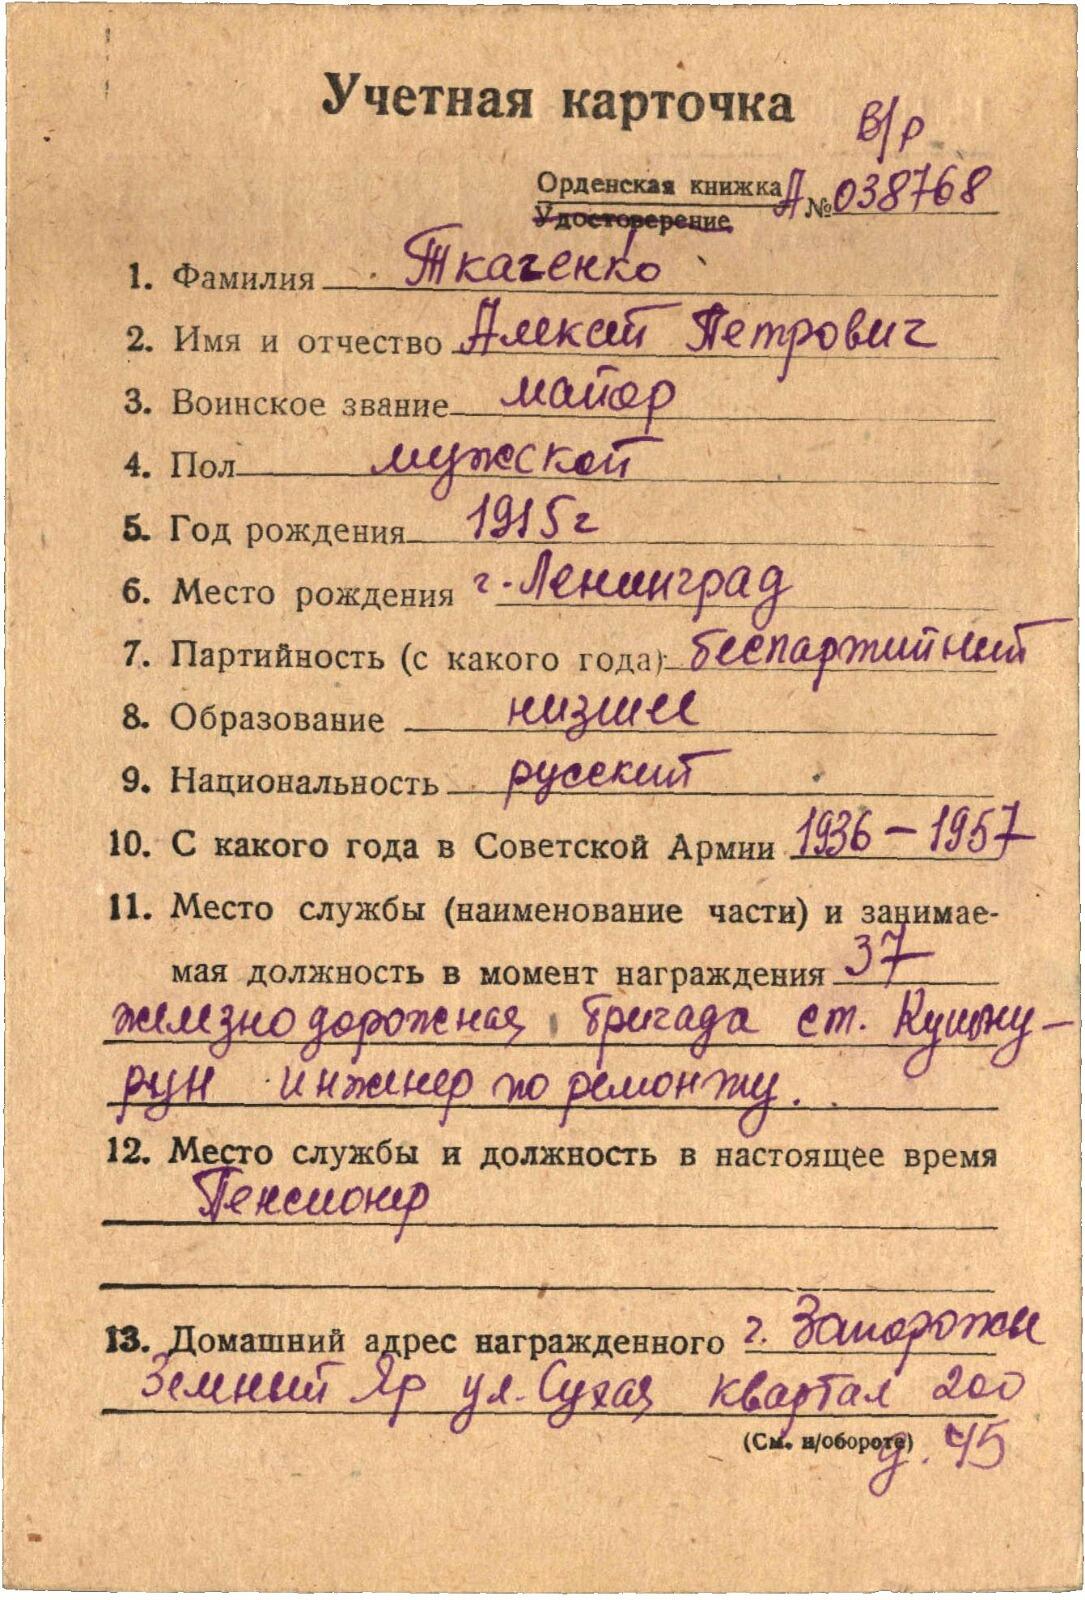 Учетная карточка
в/р
Орденская книжка А № 038768
Удостоверение
1. Фамилия Ткаченко
2. Имя и отчество Алексей Петрович
3. Воинское звание майор
4. Пол мужской
5. Год рождения 1915 г
6. Место рождения г. Ленинград
7. Партийность (с какого года) беспартийний
8. Образование низшее
9. Национальность русский
10. С какого года в Советской Армии 1936 – 1957
11. Место службы (наименование части) и занимае-
мая должность в момент награждения 37
железнодорожная бригада ст. Кушму-
рун инженер по ремонту.
12. Место службы и должность в настоящее время
Пенсионер
13. Домашний адрес награжденного г. Запорожье
Яр ул. Сухая квартал 200
(См. н/обороте) д. 45